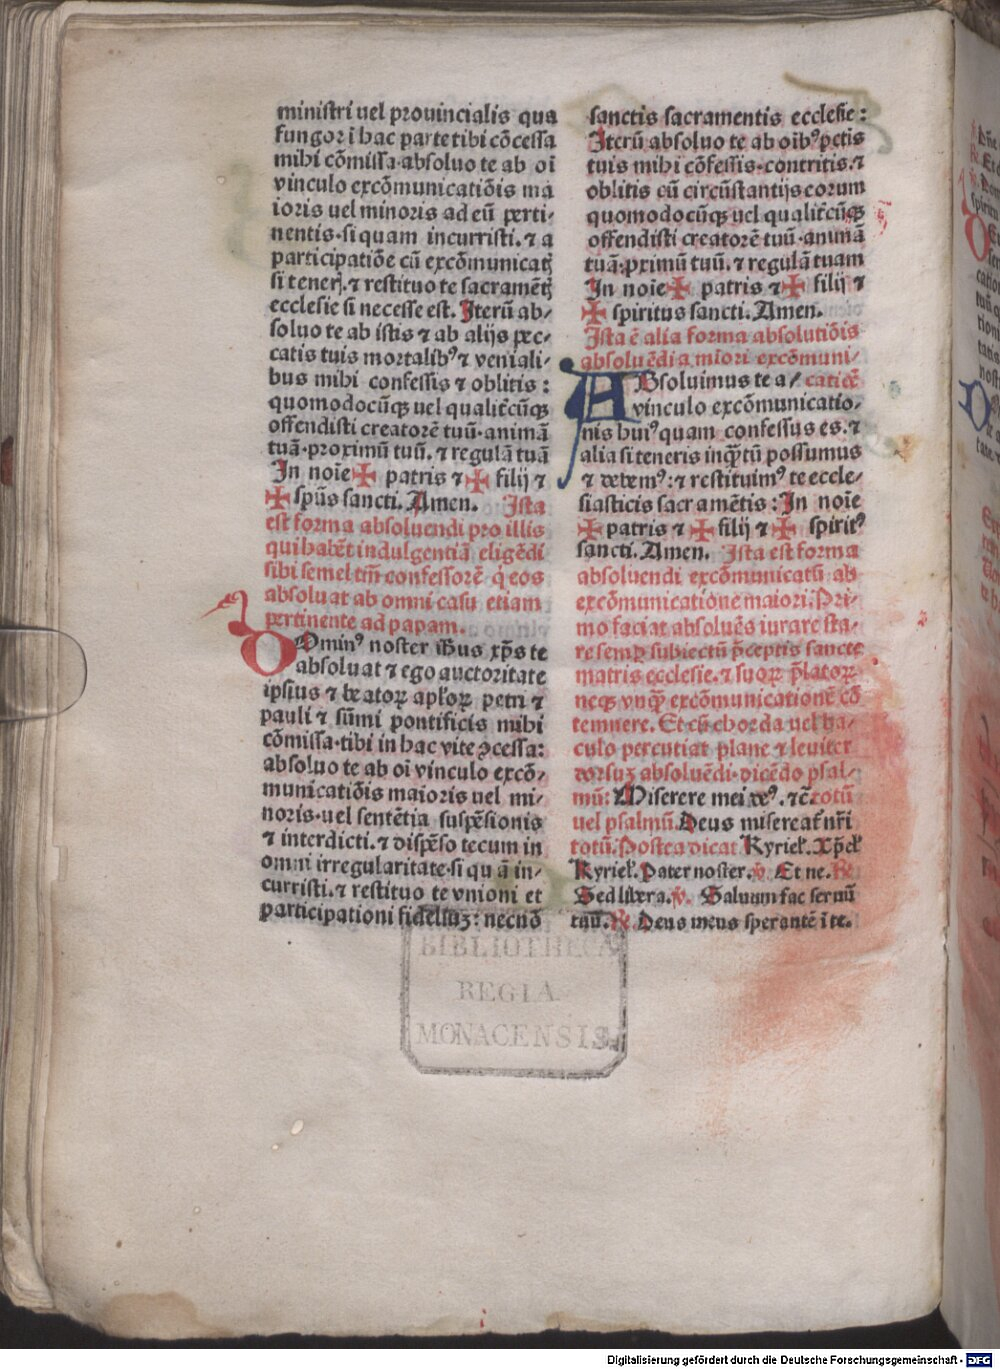 ministri uel prouincialis qua
fungor ī hac parte tibi cōcessa
mihi cōmissa·absoluo te ab oī
vinculo excōmunicatiōis ma
ioris uel minoris ad eū perti-
nentis·si quam incurristi. ⁊ a
participatiōe cū excōmunicatꝭ
si tenerꝭ. ⁊ restituo te sacramētꝭ
ecclesie si necesse est. Iterū ab-
soluo te ab istis ⁊ ab alijs pec-
catis tuis mortalibꝰ ⁊ veniali-
bus mihi confessis ⁊ oblitis :
quomodocūqꝫ uel qualit̄cūqꝫ
offendisti creatorē tuū·animā
tuā·proximū tuū. ⁊ regulā tuā
In noīe ✠ patris ⁊ ✠ filij ⁊
✠ spūs sancti. Amen. Ista
est forma absoluendi pro illis
qui habēt indulgentiā eligēdi
sibi semel tm̄ confessorē q̇ eos
absoluat ab omni casu etiam
pertinente ad papam.
DOminꝰ noster ih̄us xp̄s te
absoluat ⁊ ego auctoritate
ipsius ⁊ beatoꝝ apl̄oꝝ petri ⁊
pauli ⁊ sūmi pontificis mihi
cōmissa·tibi in hac vite ↄcessa:
absoluo te ab oī vinculo excō-
municatiōis maioris uel mi-
noris·uel sentētia suspēsionis
⁊ interdicti. ⁊ dispēso tecum in
omni irregularitate·si quā in-
curristi. ⁊ restituo te vnioni et
participationi fideliuꝫ: necnō
sanctis sacramentis ecclesie:
Iterū absoluo te ab oībꝰ pctīs
tuis mihi cōfessis·contritis. ⁊
oblitis cū circūstantijs eorum
quomodocūqꝫ uel qualit̄cūqꝫ
offendisti creatorē tuū·animā
tuā·ꝓximū tuū. ⁊ regulā tuam
In noīe ✠ patris ⁊ ✠ filij ⁊
✠ spiritus sancti. Amen.
Ista ē alia forma absolutiōis
absoluēdi a maiori excōmuni-
ABsoluimus te a / catiōe
vinculo excōmunicatio-
nis huiꝰ quam confessus es. ⁊
alia si teneris inqꝫtū possumus
⁊ debemꝰ: ⁊ restituimꝰ te eccle-
siasticis sacramētis: In noīe
✠ patris ⁊ ✠ filij ⁊ ✠ spiritꝰ
sancti. Amen. Ista est forma
absoluendi excōmunicatū ab
excōmunicatione maiori. Pri-
mo faciat absoluēs iurare sta-
re semꝑ subiectū p̄ceptis sancte
matris ecclesie. ⁊ suoꝝ p̄latoꝝ
necqꝫ vnqꝫ excōmunicationē cō
temnere. Et cū chorda uel ba-
culo percutiat plane ⁊ leuiter
dorsuꝫ absoluēdi·dicēdo psal-
mū: Miserere mei deꝰ. ⁊c̄ totū
uel psalmū. Deus misereat̄ nr̄i
totū. Postea dicat Kyriel̄. Xp̄el̄
Kyriel̄. Pater noster. ℣. Et ne. ℟
Sed libera. ℣. Saluum fac seruū
tuū. ℟. Deus meus sperantē ī te.
BIBLIOTHECA
REGIA
MONACENSIS
Digitalisierung gefördert durch die Deutsche Forschungsgemeinschaft - DFG